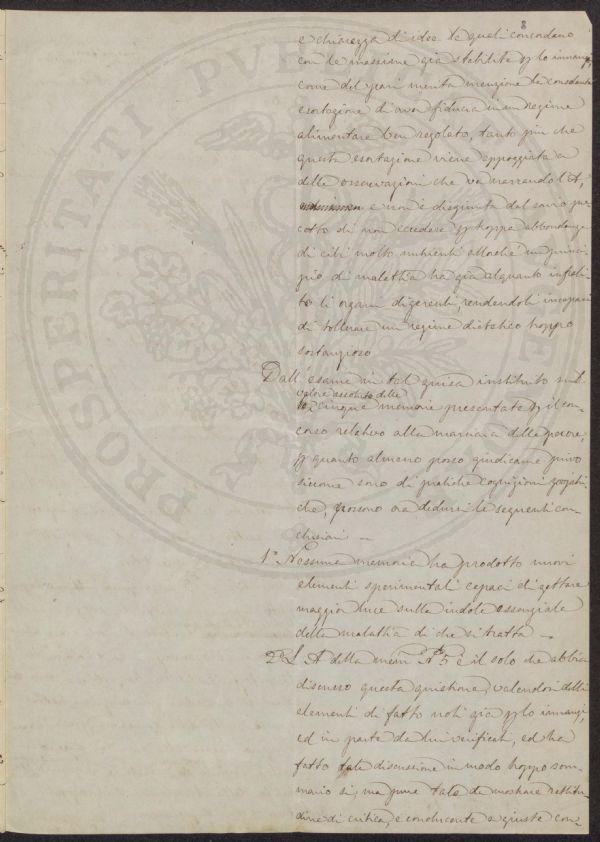 8
e chiarezza di idee le quali concordano
con le massime già stabilite per lo innanzi,
come del pari merita menzione la consolante
esortazione di aver fiducia in un regime
alimentare ben regolato, tanto più che
questa esortazione viene appoggiata a
delle osservazioni che va narrando l'A,
e non è disgiunta dal savio pre-
cetto di non eccedere per troppa abbondanza
di cibi molto nutrienti allorchè un princi-
pio di malattia ha già alquanto infiebi-
to li organi digerenti, rendendoli incapaci
di tollerare un regime dietetico troppo
sostanzioso
Dall'esame in tal guisa instituito sul
valore assoluto delle
cinque memorie presentate per il con-
corso relativo alla marciaia delle pecore,
per quanto almeno posso giudicarne privo
siccome sono di pratiche cognizioni zoojatri-
che, possono ora dedursi le seguenti con-
clusioni _
1° Nessuna memoria ha prodotto nuovi
elementi sperimentali capaci di gettare
maggior luce sulla indole essenziale
della malattia di che si tratta _
2° L'A della mem N° 5 è il solo che abbia
discusso questa quistione, valendosi delli
elementi di fatto noti già per lo innanzi,
ed in parte da lui verificati, ed ha
fatto tale discussione in modo troppo som-
mario si, ma pure tale da mostrare rettitu-
dine di critica, e conducente a giuste con-
PROSPERITATI PVB